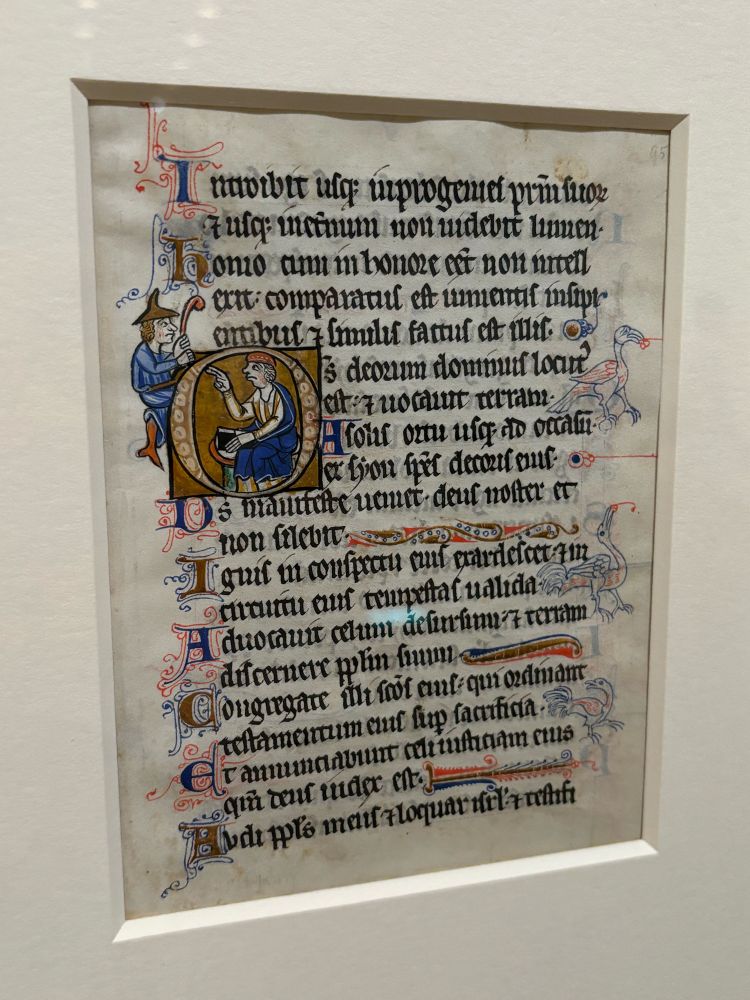 Introibit usq; in progenies prm̄ suoꝝ
⁊ usq; inet̄num non uidebit lumen·
homo cum in honore eēt non intell
exit· comparatus est iumentis insipi
entibus ⁊ similis factus est illis·
Ds̄ deorum dominus locut᾽
est· ⁊ uocauit terram·
A solis ortu usq; ad occasū·
ex syon spēs decoris eius·
Ds̄ manifeste ueniet· deus noster et
non silebit·
Ignis in conspectu eius exardescet· ⁊ in
circuitu eius tempestas ualida·
Aduocauit celum desursum· ⁊ terram
discernere pplm̄ suum·
Congregate illi scōs eius· qui ordinant
testamentum eius sup̄ sacrificia·
Et annunciabunt celi iusticiam eius
qm̄ deus iudex est·
Audi ppl̄s meus ⁊ loquar isrl̄· ⁊ testifi
95